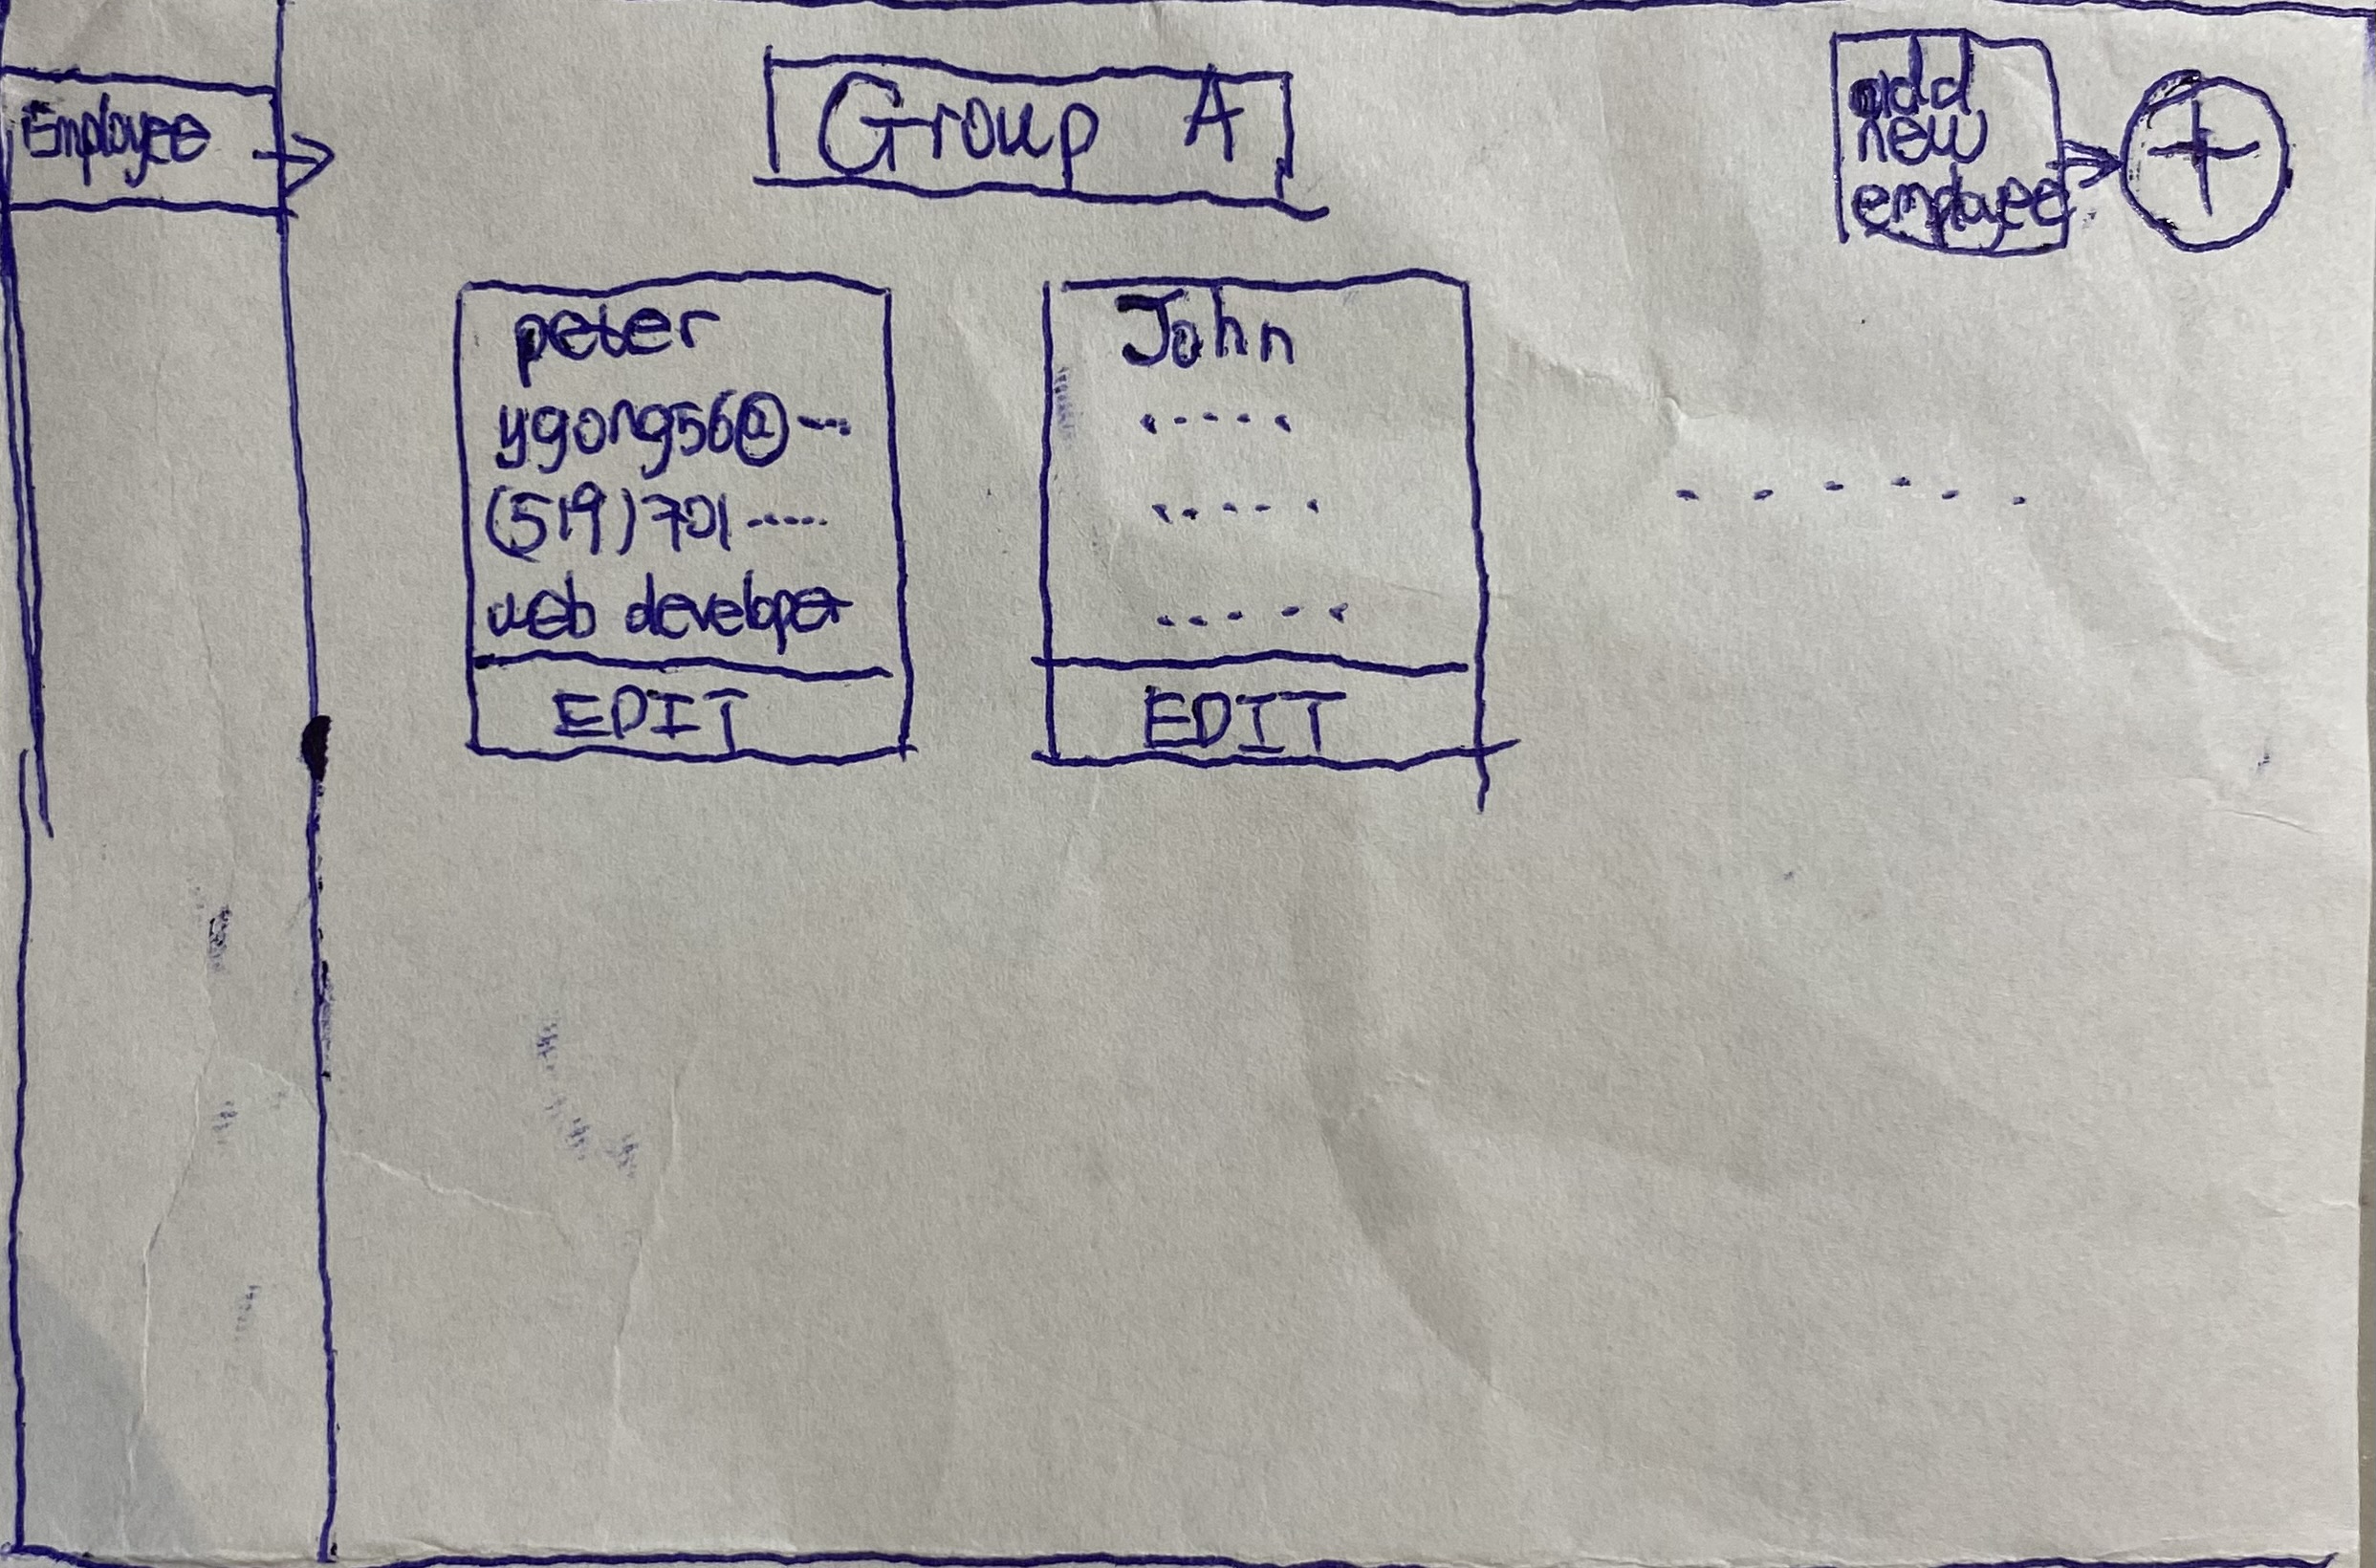 Employee
Group A
add
new
employee
+
peter
ygong56@ ---
(519)701 -----
web developer
EDIT
John
.....
.....
.....
EDIT
. . . . . .